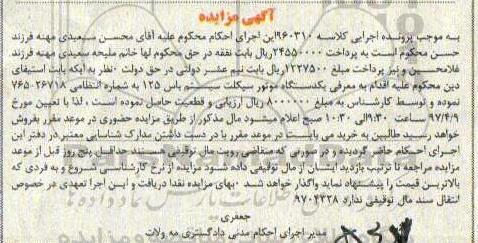 آگهی مزایده
به موجب پرونده اجرایی کلاسه ۹۶۰۳۱۰این اجرای احکام محکوم علیه آقای محسن سعیدی مهنه فرزند
حسن محکوم است به پرداخت ۲۴۵۵۰۰۰۰ریال بابت نفقه در حق محکوم لها خانم ملیحه سعیدی مهنه فرزند
غلامحسین و نیز پرداخت مبلغ ۱۲۲۷۵۰۰ریال بابت نیم عشر دولتی در حق دولت .نظر به اینکه بابت استیفای
دین محکوم علیه اقدام به معرفی یکدستگاه موتور سیکلت سیستم باس ۱۲۵ به شماره انتظامی ۲۶۷۱۸-۷۶۵
نموده و توسط کارشناس به مبلغ ۸۰۰۰۰۰۰ ریال ارزیابی و قطعیت حاصل نموده است ، لذا با تعیین مورخ
۹۷/۴/۹ ساعت ۹:۳۰الی ۱۰:۳۰ صبح اعلام میشود مال مذکور از طریق مزایده حضوری در موعد مقرر بفروش
خواهد رسید طالبین به خرید می بایست در موعد مقرر با در دست داشتن مدارک شناسایی معتبر در دفتر این
اجرای احکام حاضر گردیده و در صورتی که متقاضی رویت مال توقیفی هستند حداقل پنج روز قبل از موعد
مزایده مراجعه تا ترتیب بازدید ایشان از مال توقیفی داده شود مزایده از نرخ کارشناسی شروع و به فردی که
بالاترین قیمت را پیشنهاد نماید واگذار خواهد شد .بهای مزایده نقدا دریافت و این اجرا تعهدی در خصوص
انتقال سند مال توقیفی ندارد ۹۷۰۴۳۲۸
جعفری
مدیر اجرای احکام مدنی دادگستری مه ولات